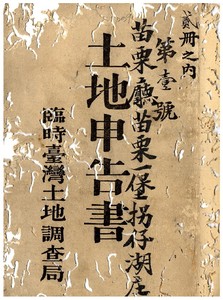 貳冊之內
第壹號
苗栗廳苗栗保拐仔湖庄
土地申告書
臨時臺灣土地調查局